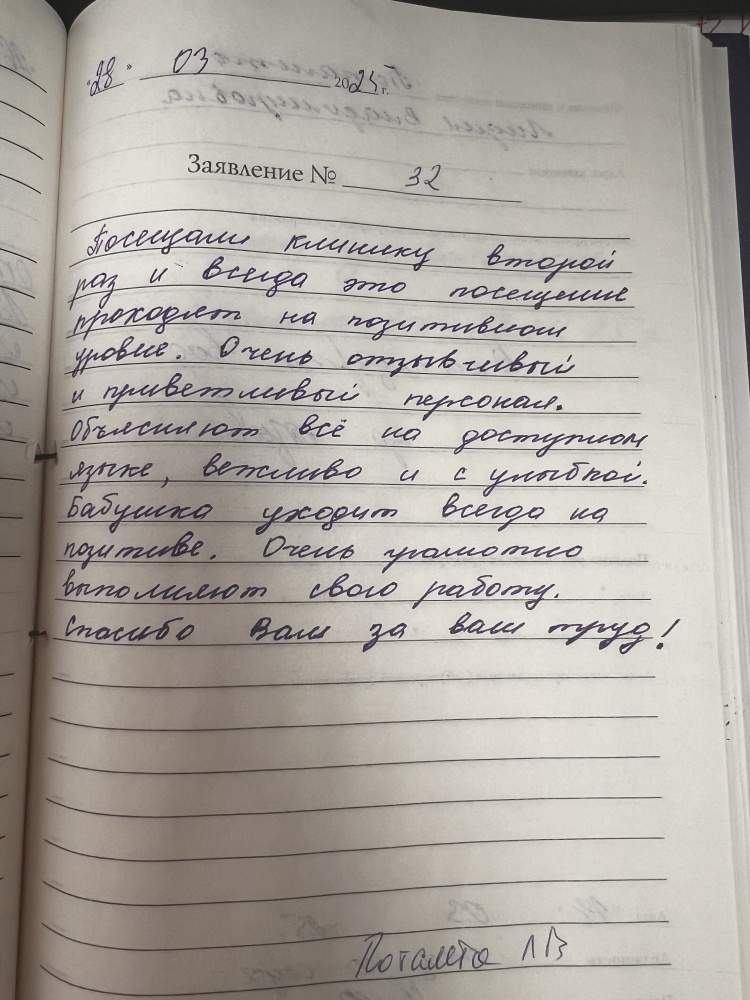 "28" 03 2025 г.
Заявление № 32
Посещали клинику второй
раз и всегда это посещение
проходят на позитивном
уровне. Очень отзывчивый
и приветливый персонал.
Объясняют всё на доступном
языке, вежливо и с улыбкой.
Бабушка уходит всегда на
позитиве. Очень грамотно
выполняют свою работу.
Спасибо Вам за ваш труд!
ЛВ